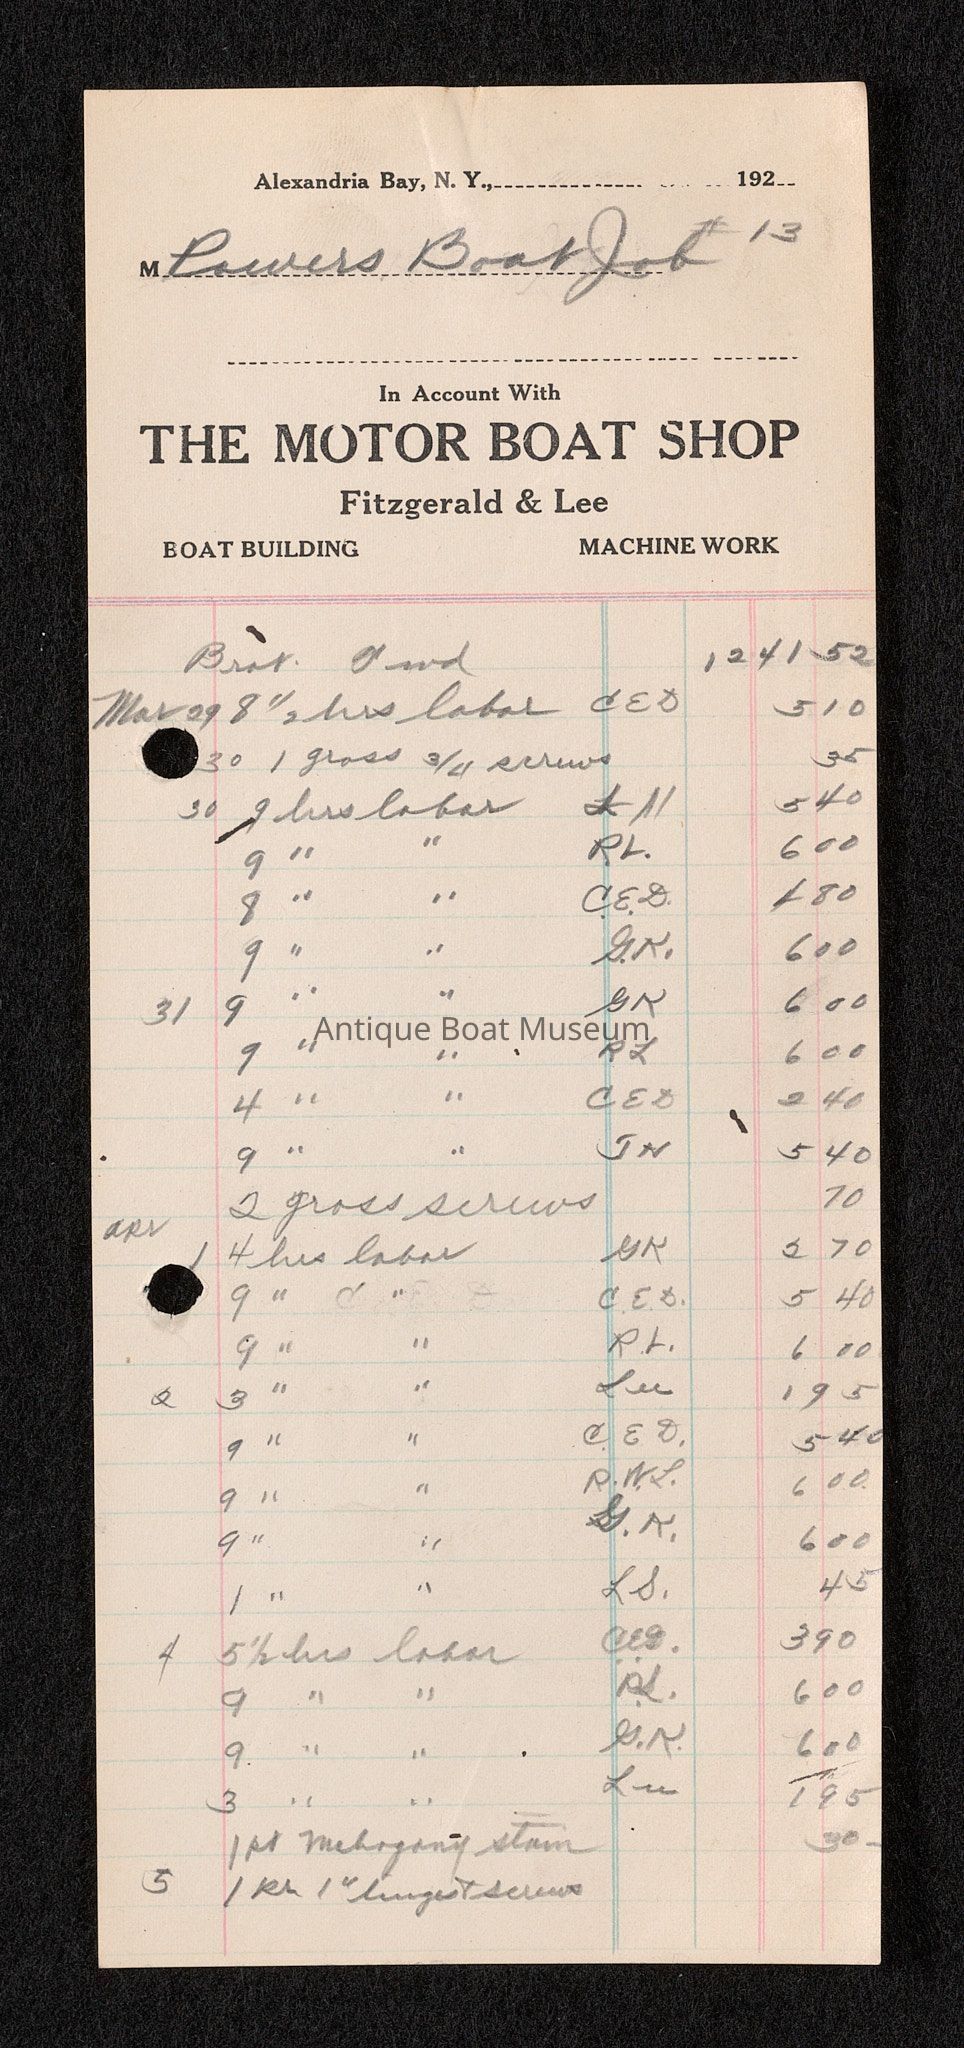 Alexandria Bay, N. Y., 192
M Powers Boat Job # 13
In Account With
THE MOTOR BOAT SHOP
Fitzgerald & Lee
BOAT BUILDING MACHINE WORK
Brot. Fwd 1241 52
Mar 29 8 1/2 hrs labor CED 5 10
30 1 gross 3/4 screws 35
30 9 hrs labor 5 40
9 " " RL. 6 00
8 " " C.E.D. 4 80
9 " " G.K. 6 00
31 9 " " GK 6 00
Antique Boat Museum
9 " " RL 6 00
4 " " CED 2 40
9 " " JN 5 40
2 gross screws 70
apr
1 4 hrs labor GK 2 70
9 " " C.E.D. 5 40
9 " " R.L. 6 00
2 3 " " Lee 1 95
9 " " C.E.D. 5 40
9 " " R.W.L. 6 00
9 " " G.K. 6 00
1 " " L.S. 45
4 5 1/2 hrs labor CED. 3 90
9 " " RL. 6 00
9 " " G.K. 6 00
3 " " Lee 1 95
1 pt Mahogany stain 30
5 1 pr 1" hinges + screws